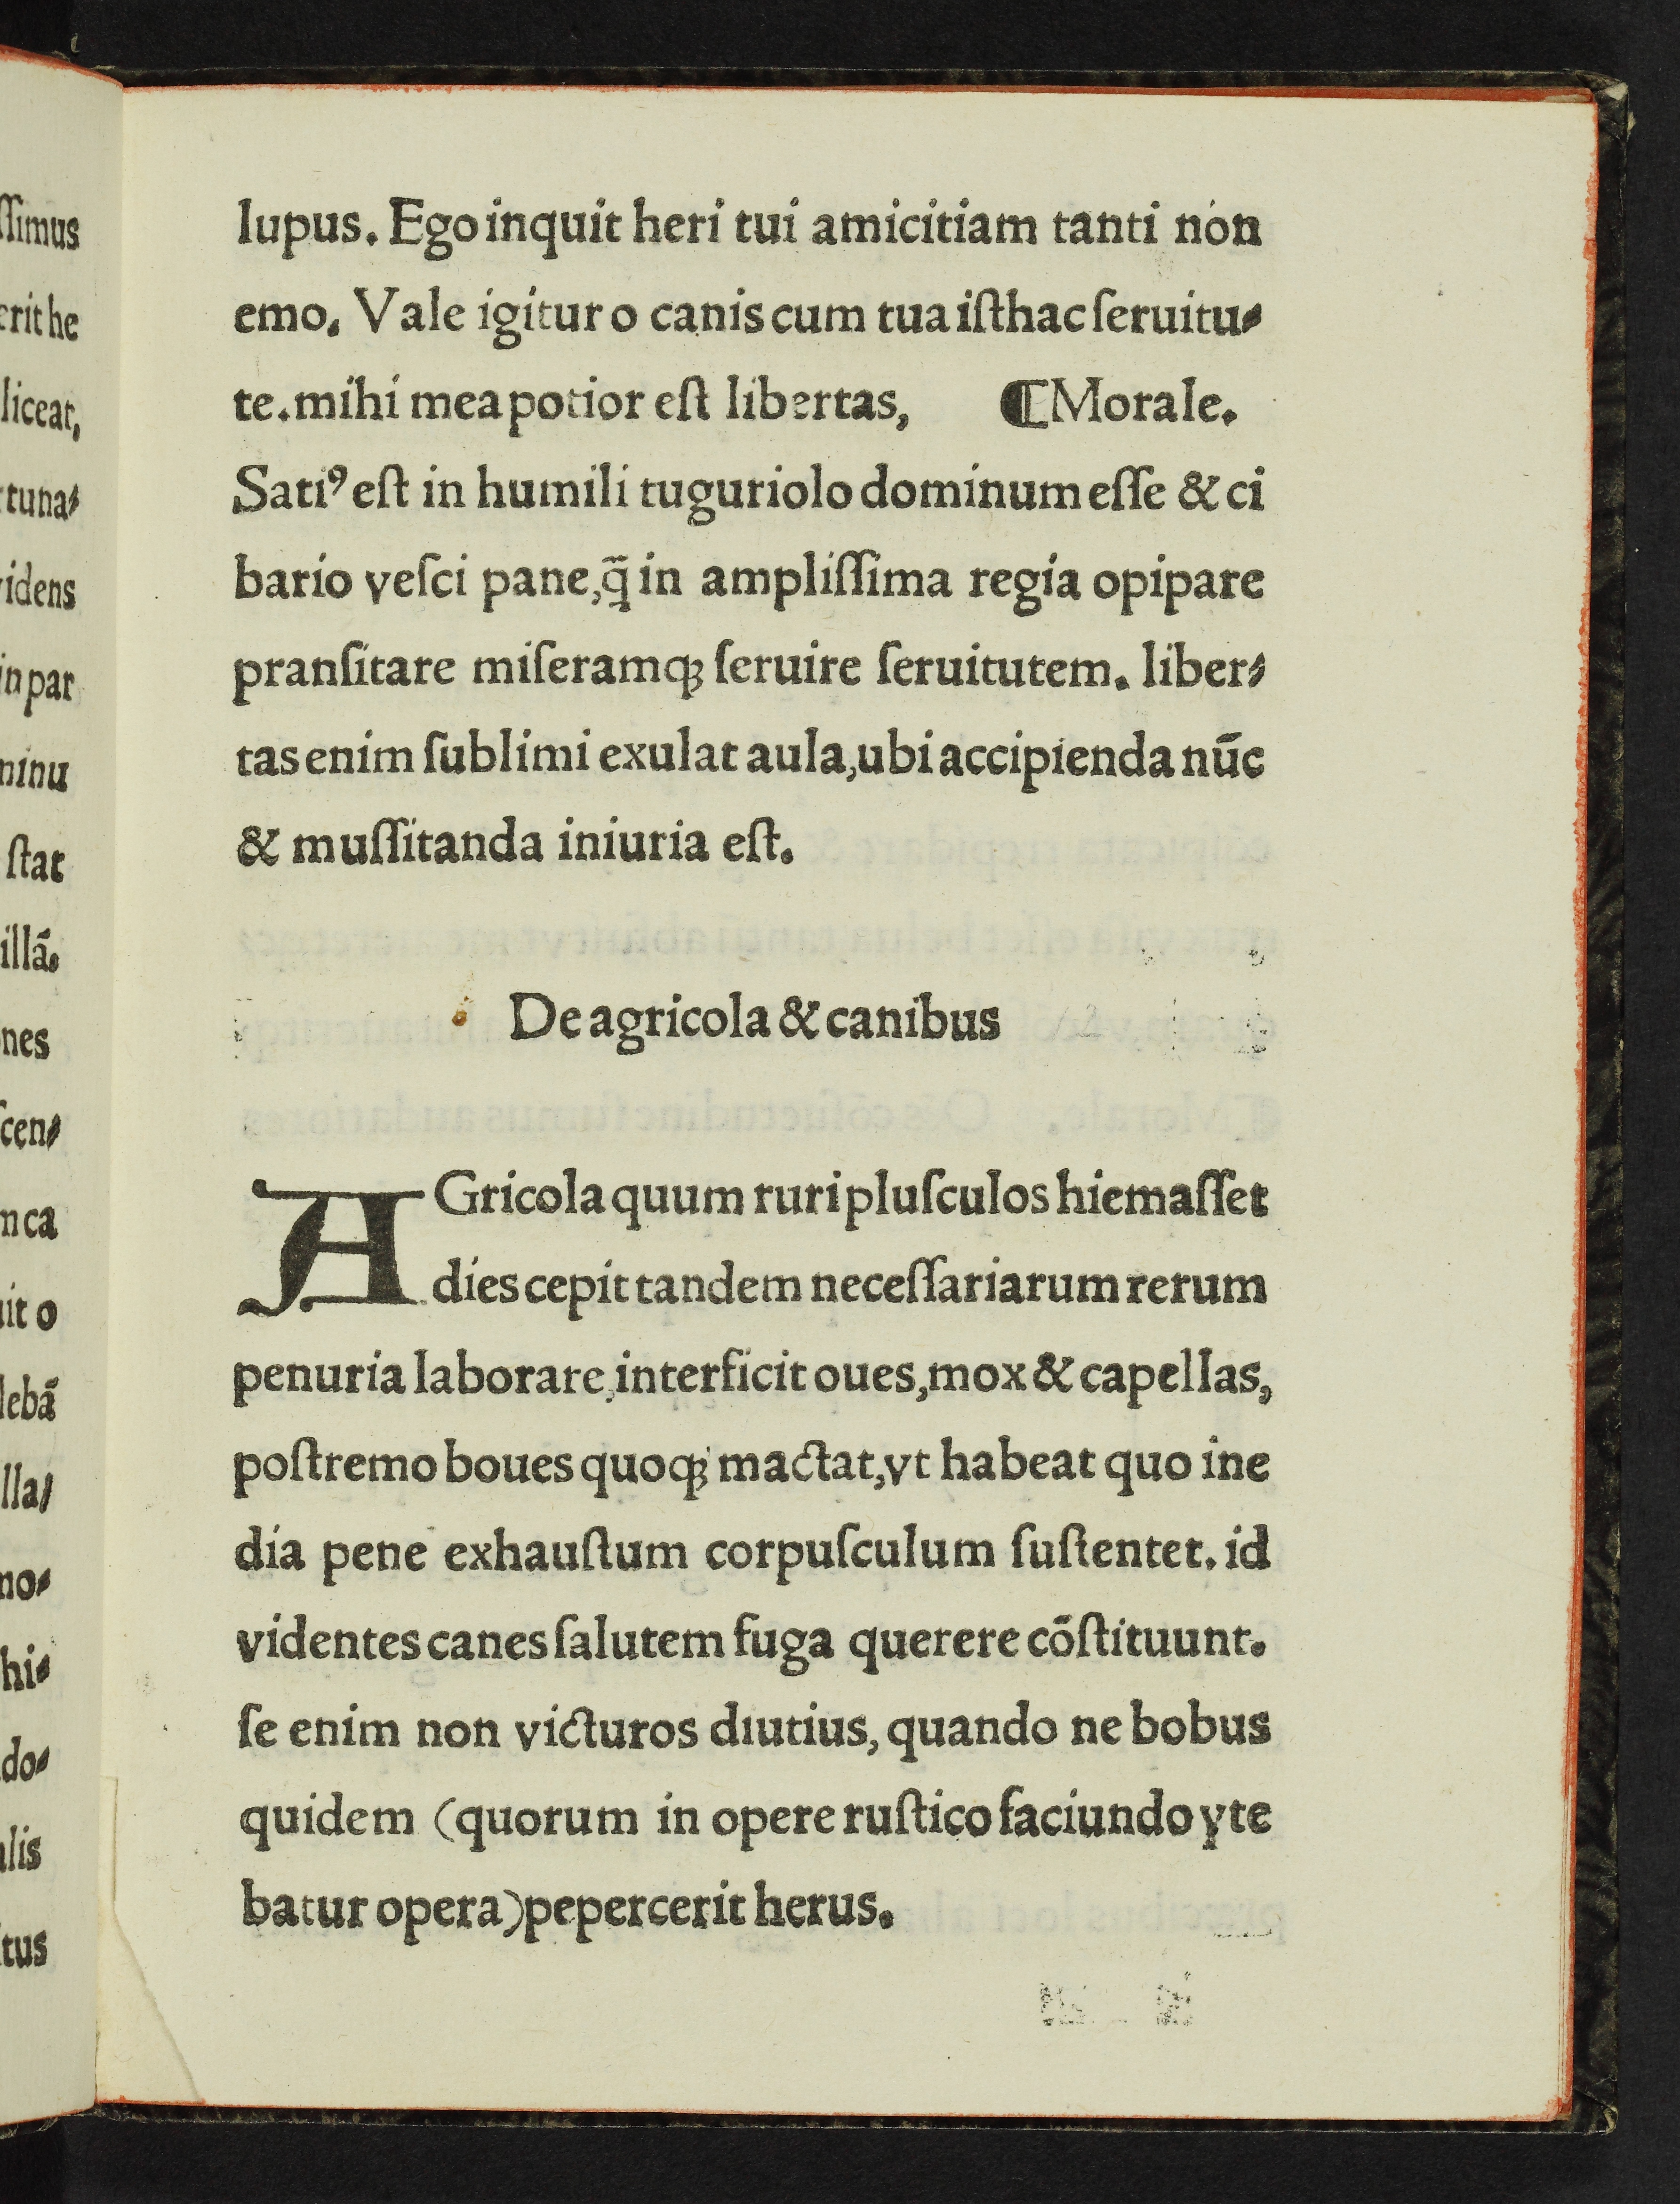 lupus. Ego inquit heri tui amicitiam tanti non
emo. Vale igitur o canis cum tua iſthac ſeruitu-
te. mihi mea potior eſt libertas, ⸿Morale.
Satiꝰ eſt in humili tuguriolo dominum eſſe & ci
bario veſci pane, q̄ in ampliſſima regia opipare
pranſitare miſeramqꝫ ſeruire ſeruitutem. liber-
tas enim ſublimi exulat aula, ubi accipienda nūc
& muſſitanda iniuria eſt.
De agricola & canibus
AGricola quum ruri pluſculos hiemaſſet
dies cepit tandem neceſſariarum rerum
penuria laborare, interficit oues, mox & capellas,
poſtremo boues quoqꝫ mactat, vt habeat quo ine
dia pene exhauſtum corpuſculum ſuſtentet. id
videntes canes ſalutem fuga querere cōſtituunt.
ſe enim non victuros diutius, quando ne bobus
quidem (quorum in opere ruſtico faciundo vte
batur opera) pepercerit herus.
ſſimus
erit he
liceat,
tuna-
idens
in par
ninu
ſtat
illā.
nes
ſcen-
n ca
uit o
lebā
lla-
no-
hi-
do-
alis
tus